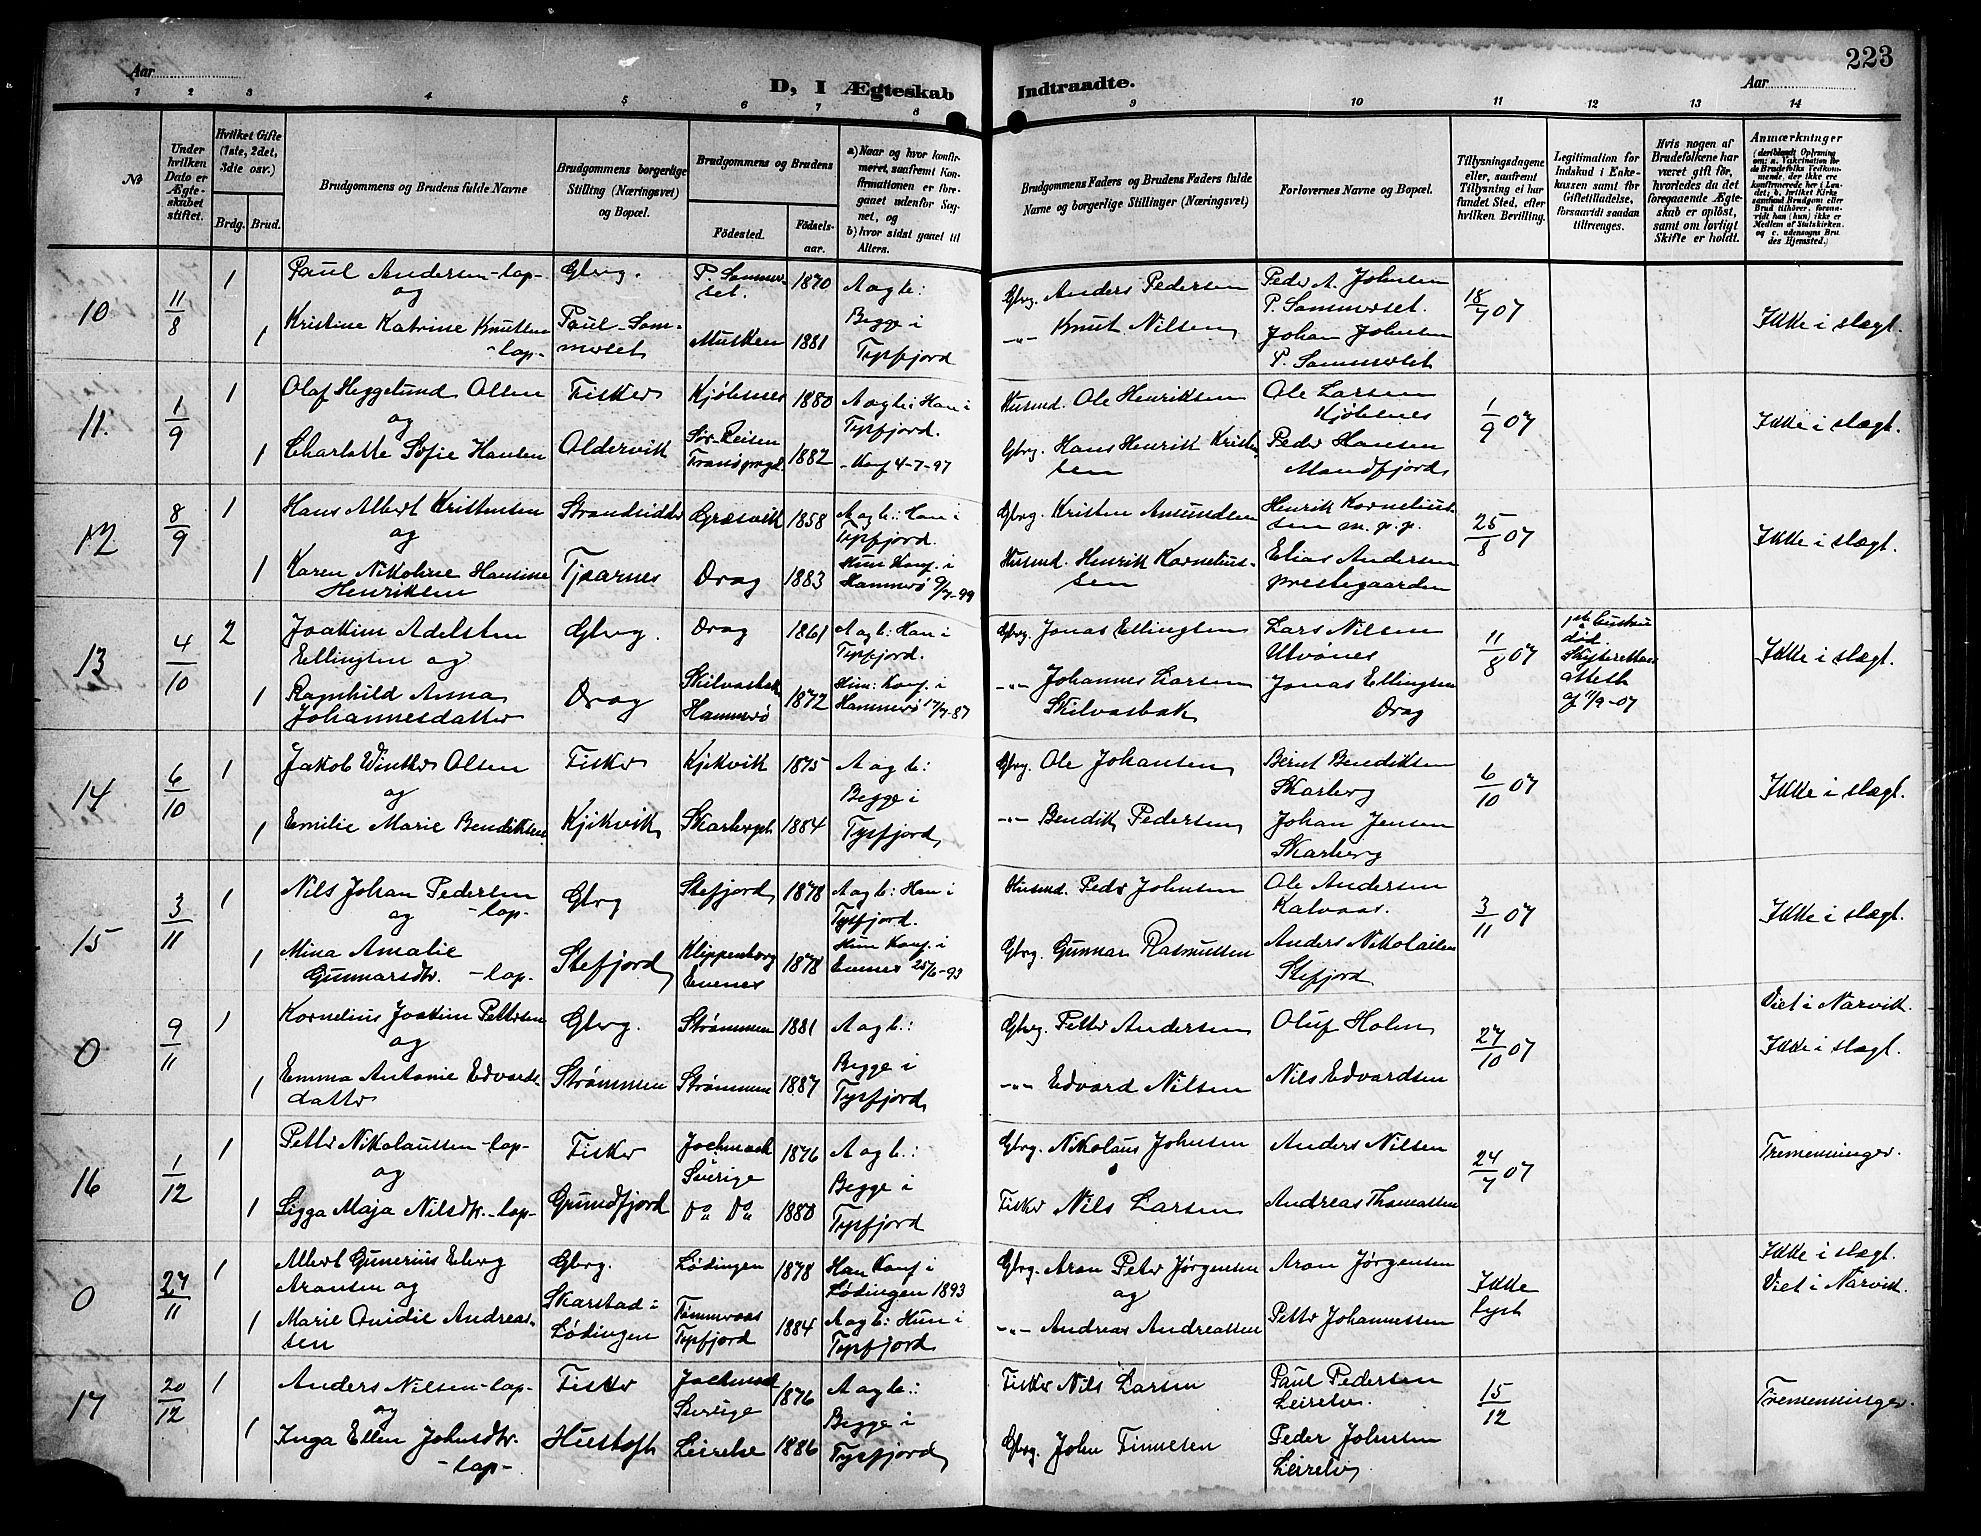 223
Aar
D, I Ægteskab Indtraadte.
Aar
1 2 3 4 5 6 7 8 9 10 11 12 13 14
№
Under hvilken Dato er Ægteskabet stiftet.
Hvilket Gifte (1ste, 2det, 3die osv.)
Brdg. Brud.
Brudgommens og Brudens fulde Navne
Brudgommens borgerlige Stilling (Næringsvei) og Bopæl.
Brudgommens og Brudens
Fødested. Fødselsaar.
a) Naar og hvor konfirmeret, saafremt Konfirmationen er foregaaet udenfor Sognet, og
b) hvor sidst gaaet til Alters.
Brudgommens Faders og Brudens Faders fulde Navne og borgerlige Stillinger (Næringsvei)
Forlovernes Navne og Bopæl.
Tillysningsdagene eller, saafremt Tillysning ei har fundet Sted, efter hvilken Bevilling.
Legitimation for Indskud i Enkekassen samt for Giftetilladelse, forsaavidt saadan tiltrænges.
Hvis nogen af Brudefolkene har været gift før, hvorledes da det foregaaende Ægteskab er opløst, samt om lovligt Skifte er holdt.
Anmærkninger
10 11/8 1 Paul Andersen -lap- Gbrg. P. Sommerset. 1870 A og b: Gbrg. Anders Pedersen Peder A. Johnsen 18/7 07 Ikke i slægt.
og Begge i P. Sommerset.
1 Kristine Katrine Knutsen -lap- Paul-Sommerset Musken 1881 Tysfjord -"- Knut Nilsen Johan Johnsen
P. Sommerset
11. 1/9 1 Olaf Heggelund Olsen Fisker Kjøbsnes 1880 A og b: Han i Tysfjord. Husmd. Ole Henriksen Ole Larsen Kjøbsnes 1/9 07 Ikke i slægt.
og
1 Charlotte Sofie Hansen Oldervik Sør-Reisen 1882 -Konf 4-7-97 Gbrg. Hans Henrik Kristensen Peder Hansen Mandfjord
12 8/9 1 Hans Albert Kristensen Strandsidder Græsvik 1858 A og b.: Han i Tysfjord. Gbrg. Kristen Amundsen Henrik Korneliussen m. p. p. 25/8 07 Ikke i slægt.
og
1 Karen Nikoline Hansine Henriksen Tjaarnes Drag 1883 Hun Konf. i Hammerø 9/7-99 Husmd. Henrik Korneliussen Elias Andersen prestegaarden
13 4/10 2 Joakim Adelsten Ellingsen og Gbrg. Drag 1861 A og b: Han i Tysfjord. Gbrg. Jonas Ellingsen Lars Nilsen Utvönes 11/8 07 1ste hustru død. Skifterettens attest af 11/9-07 Ikke i slægt.
1 Ragnhild Anna Johannesdatter Drag Skilvasbak Hammerø 1872 Hun: Konf. i Hammerø 17/7-87 -"- Johannes Larsen Skilvasbak Jonas Ellingsen Drag
14 6/10 1 Jakob Winther Olsen Fisker Kjikvik 1875 A og b: Gbrg. Ole Johansen Bernt Bendiksen Skarberg 6/10 07 Ikke i slægt.
og Begge i
1 Emilie Marie Bendiksen Kjikvik Skarberget 1884 Tysfjord -"- Bendik Pedersen Johan Jensen Skarberg
15 3/11 1 Nils Johan Pedersen -lap- Gbrg Stefjord 1878 A og b: Han i Tysfjord. Husmd. Peder Johnsen Ole Andersen Kalvaas. 3/11 07 Ikke i slægt.
og
1 Mina Amalie Gunnarsdtr. -lap- Stefjord Klippenborg Evenes 1878 Hun Konf. i Evenes 25/6-93 Gbrg. Gunnar Rasmussen Anders Nikolaisen Stefjord
0 9/11 1 Kornelius Joakim Pettersen Gbrg. Strømmen 1881 A og b: Gbrg. Petter Andersen Oluf Holm 27/10 07 Viet i Narvik.
og Begge i Ikke i slægt.
1 Emma Antonie Edvardsdatter Strømmen Strømmen 1887 Tysfjord -"- Edvard Nilsen Nils Edvardsen
16 1/12 1 Petter Nikolaussen -lap- Fisker Jockmock Sverige 1876 A og b.: Gbrg. Nikolaus Johnsen Anders Nilsen 24/7 07 Tremenninger.
og Begge i
1 Sigga Maja Nilsdtr. -lap- Grundfjord Do Do 1880 Tysfjord Fisker Nils Larsen Andreas Thomassen
0 27/11 1 Albert Gunerius Eberg Aronsen og Gbrg. Lødingen 1878 Han Konf i Lødingen 1893 Gbrg. Aron Peter Jørgensen Aron Jørgensen Ikke lyst Ikke i slægt.
Skarstad i og Viet i Narvik
1 Marie Ovidie Andreassen Lødingen Tømmeraas Tysfjord 1884 A og b: Hun i Tysfjord -"- Andreas Andreassen Petter Johannessen
17 20/12 1 Anders Nilsen -lap- Fisker Jockmock Sverige 1876 A og b: Fisker Nils Larsen Paul Pedersen Leirelv. 15/12 Tremenninger.
og Begge i
1 Inga Ellen Johnsdtr. -lap- Hustoft Leirelv 1886 Tysfjord Gbrg. John Finnesen Peder Johnsen Leirelv